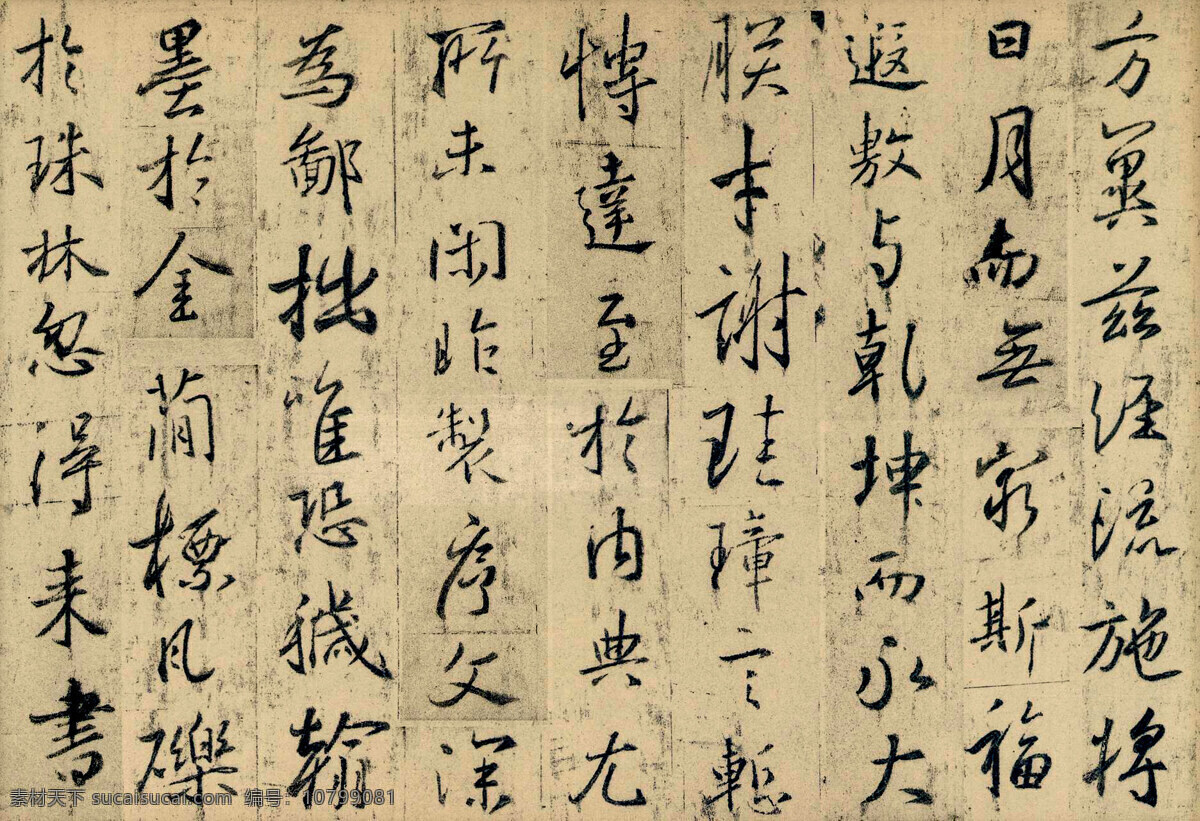 方冀茲經流施將
日月而無窮斯福
遐敷与乾坤而永大
朕才謝珪璋言慙
博達至於內典尤
所未閑昨製序文深
為鄙拙唯恐穢翰
墨於金簡標瓦礫
於珠林忽得来書
素材天下 sucaisucai.com 编号：10799081